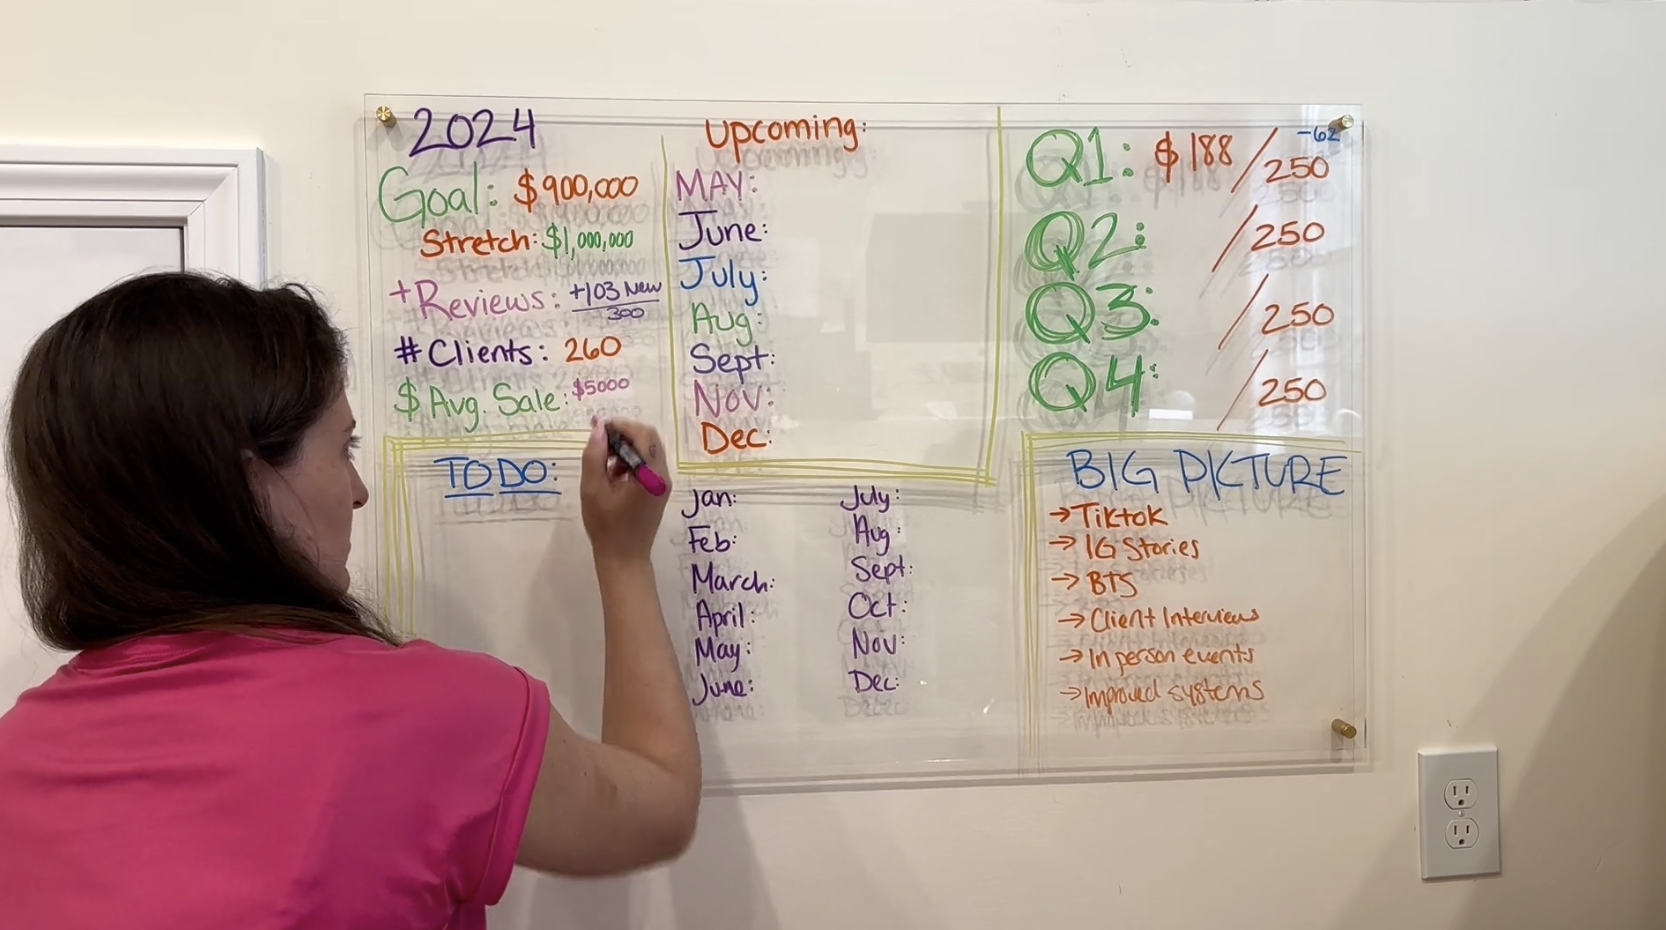 2024
Goal: $900,000
Stretch: $1,000,000
+Reviews: +103 New
300
# Clients: 260
$ Avg. Sale: $5000
Upcoming:
MAY:
June:
July:
Aug:
Sept:
Nov:
Dec:
Q1: $188/250 -62
Q2: /250
Q3: /250
Q4: /250
TO DO:
Jan:
Feb:
March:
April:
May:
June:
July:
Aug:
Sept:
Oct:
Nov:
Dec:
BIG PICTURE
→ Tiktok
→ IG Stories
→ BTS
→ Client Interviews
→ In person events
→ Improved systems